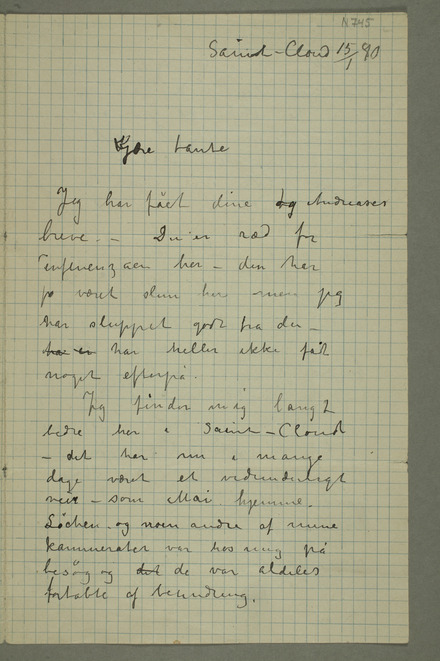 N 745
Saint-Cloud 15/1 90
Kjære tante
Jeg har fået dine og Andreases
breve. – Du er ræd for
influenzaen her – den har
jo været slem her men jeg
har sluppet godt fra den –
har heller ikke fåt
noget efterpå.
Jeg finder mig langt
bedre her i Saint-Cloud
– det har nu i mange
dage været et vidunderligt
veir – som Mai hjemme.
Löchen og noen andre af mine
kammerater var hos mig på
besøg og det de var aldeles
fortabte af beundring.